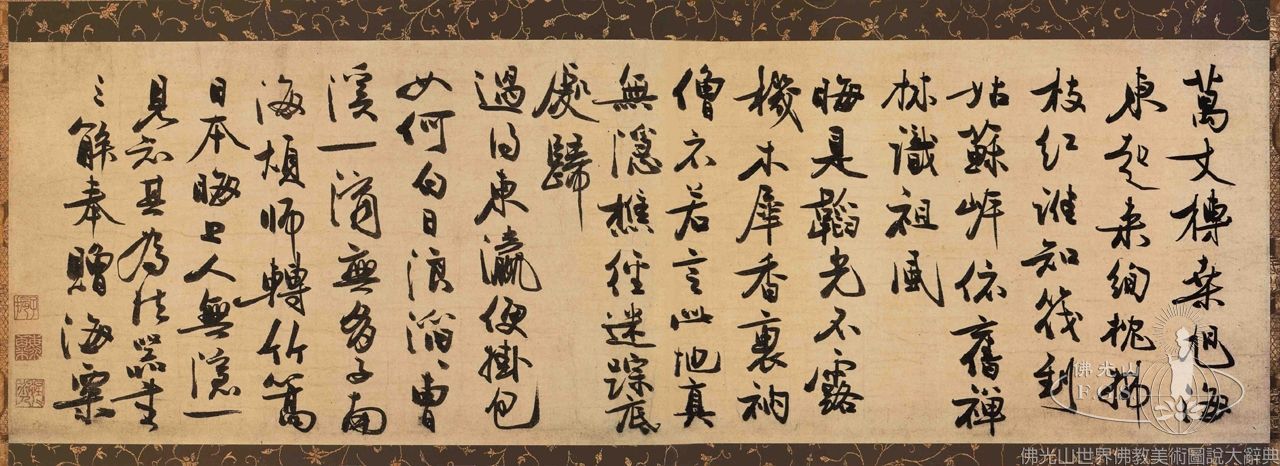 萬丈榑桑旭海
東起来絢拂
枝紅誰知筏到
姑蘇岸依舊禅
林識祖風
晦是韜光不露
機木犀香裏衲
僧衣若言此地真
無隱樵徑迷蹤底
處歸
過得東瀛便掛包
如何白日浪滔〻曹
溪一滴無多子南
海煩師轉竹篙
日本晦上人無隱一
見知其為法器書
三解奉贈海粟
佛光山
F.G.S
佛光山世界佛教美術圖說大辭典